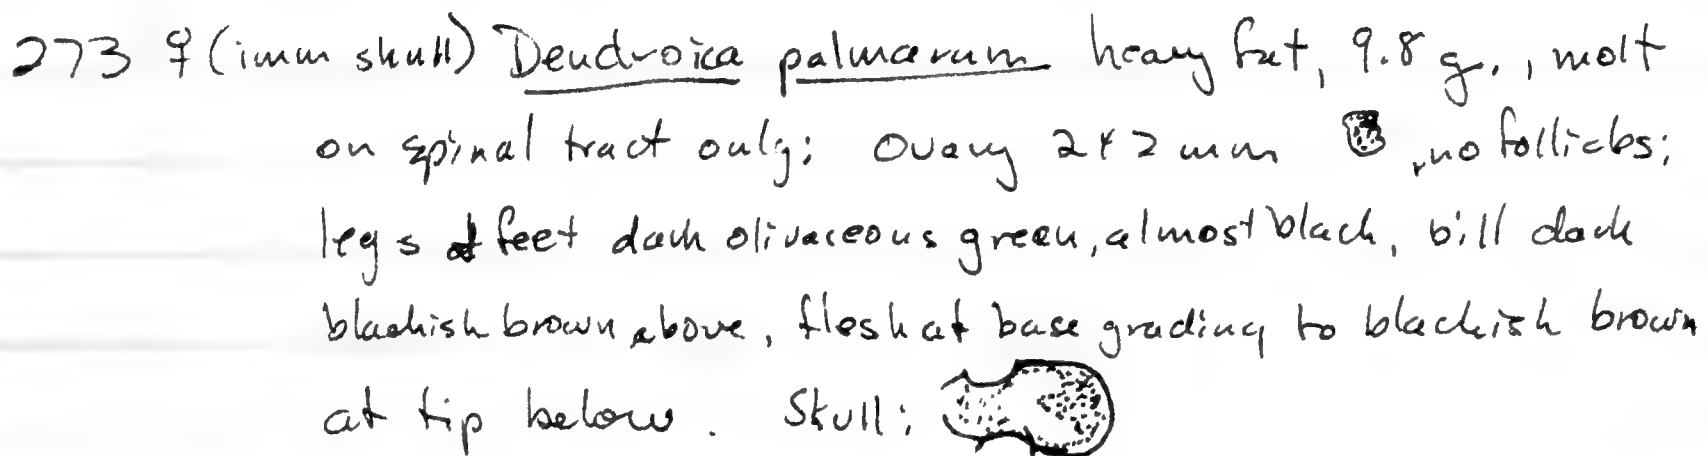 273 ♀ (imm skull) Dendroica palmarum heavy fat, 9.8 g., molt
on spinal tract only; Ovary 2x2 mm , no follicles;
legs & feet dark olivaceous green, almost black, bill dark
blackish brown above, flesh at base grading to blackish brown
at tip below. Skull: